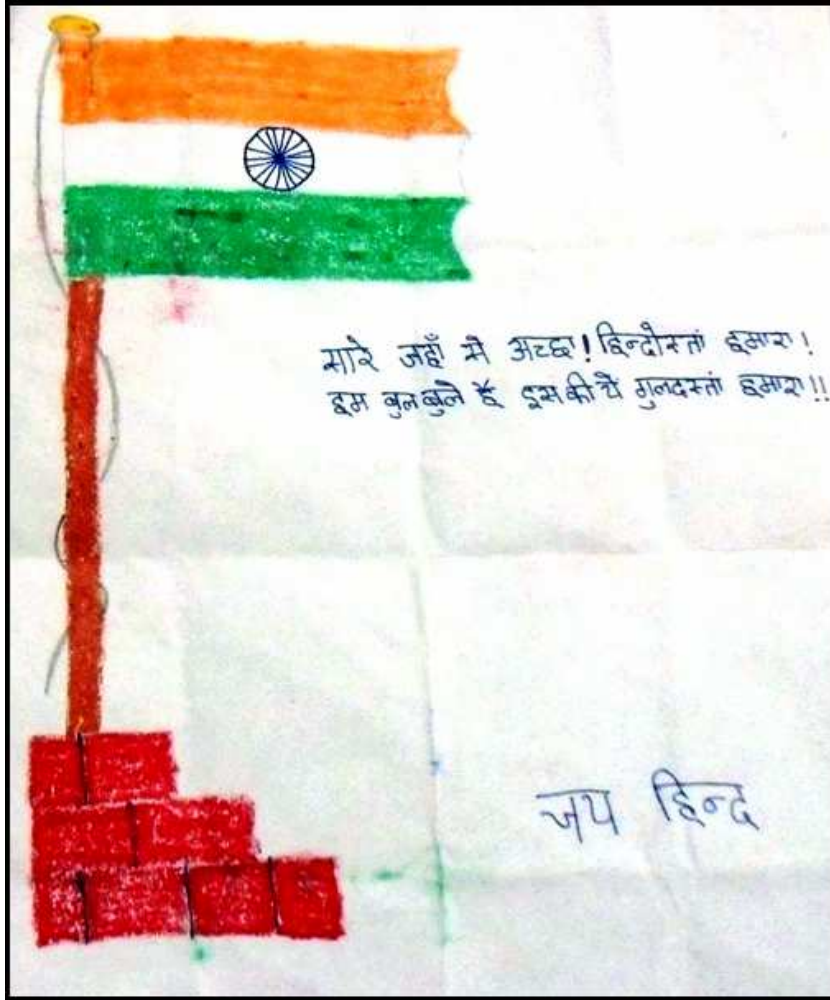 सारे जहाँ से अच्छा! हिन्दोस्तां हमारा!
हम बुलबुले हैं इसकी ये गुलदस्तां हमारा!!
जय हिन्द